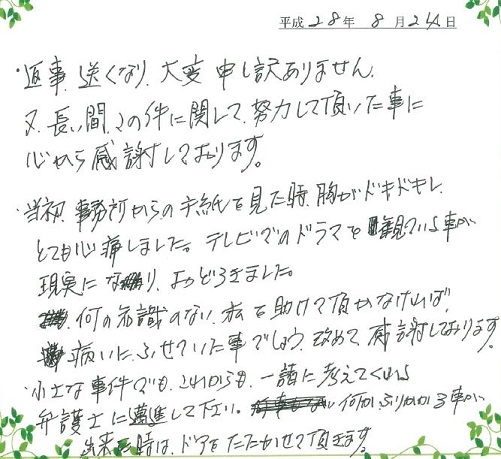 平成28年 8月24日
・返事、遅くなり、大変申し訳ありません。
又、長い間、この件に関して、努力して頂いた事に
心から感謝しております。
・当初、事務所からの手紙を見た時、胸がドキドキし、
とても心痛しました。テレビでのドラマを観ている事が
現実になり、おどろきました。
何の知識のない、私を助けて頂かなければ、
病いにふせていた事でしょう。改めて感謝しております。
・小さな事件でも、これからも、一諸に考えてくれる
弁護士に邁進して下さい。何か、ふりかかる事が
出来た時は、ドアをたたかせて頂きます。